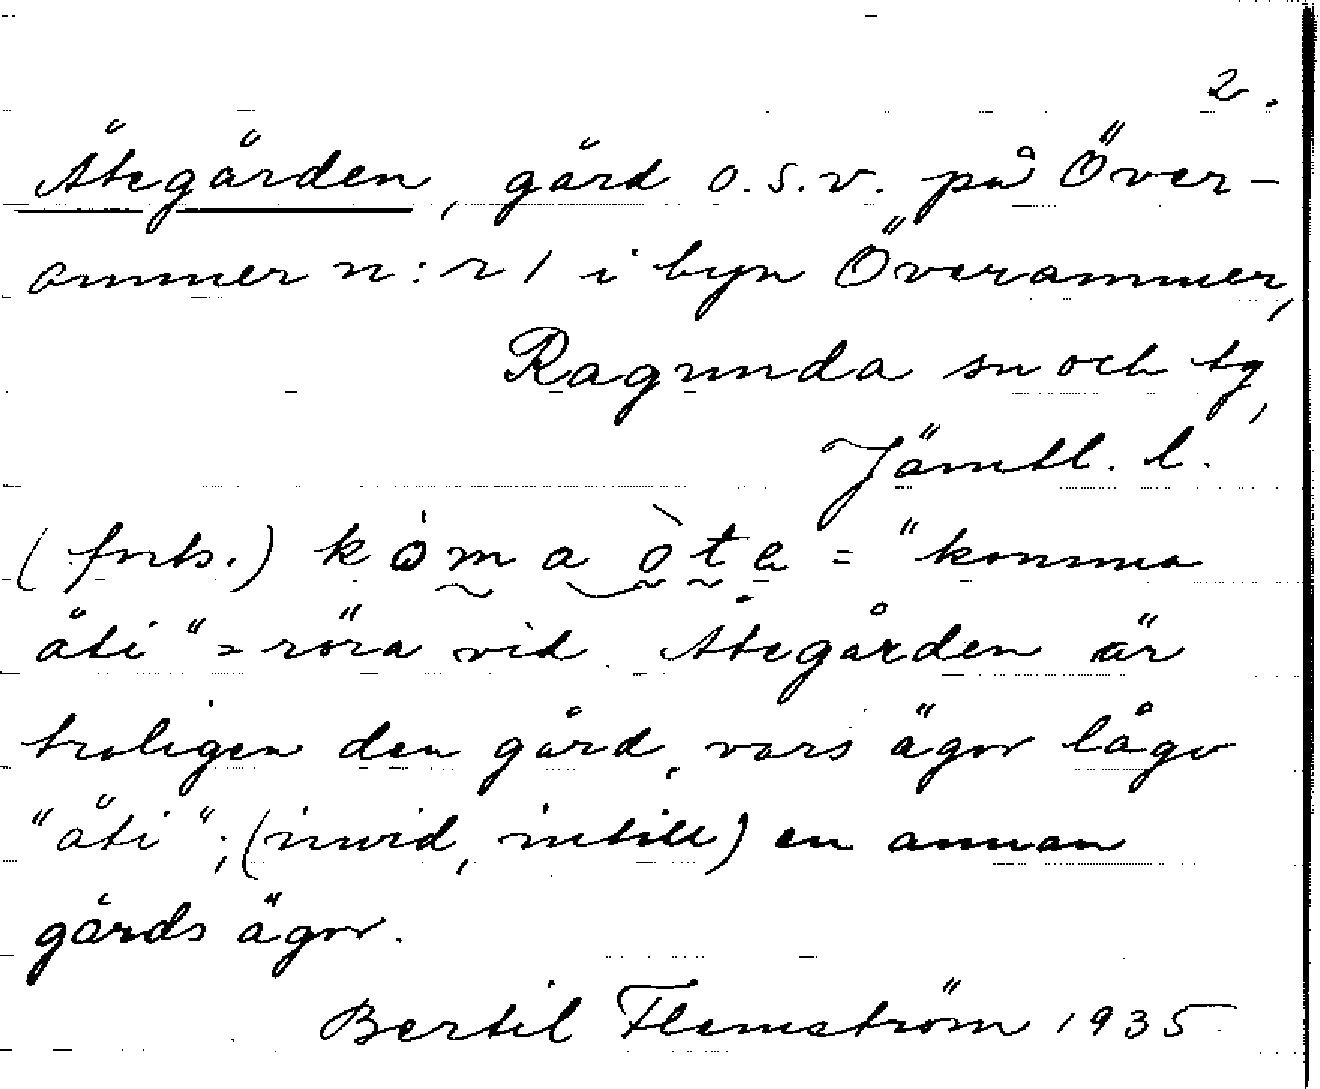 2.
Åtegården, gård o.s.v. på Över-
ammer n:r 1 i byn Överammer,
Ragunda sn och tg,
Jämtl. l.
(forts.) kòma òta = "komma
åti" = röra vid. Åtegården är
troligen den gård, vars ägor lågo
"åti"; (invid, intill) en annan
gårds ägor.
Bertil Flemström 1935